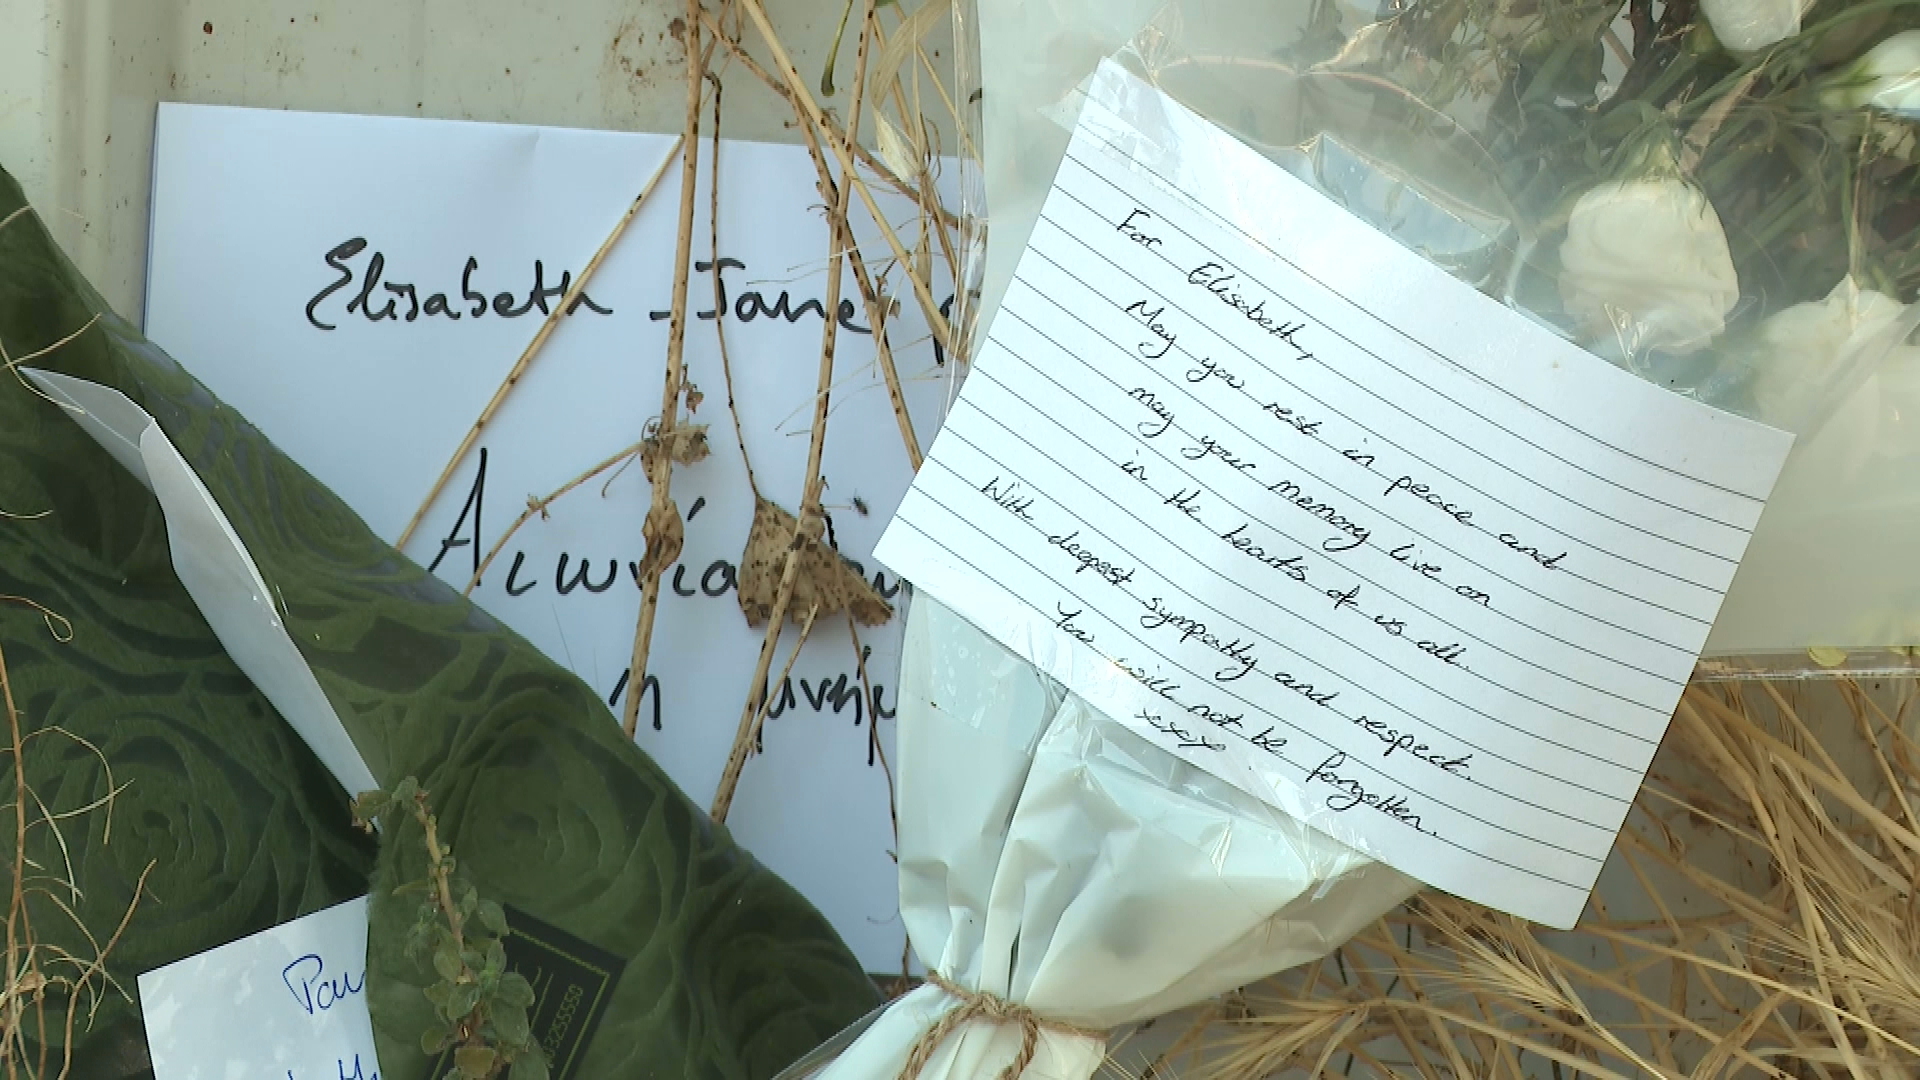 Elisabeth - Jane
Αιωνία
η μνήμ
For Elisabeth,
May you rest in peace and
may your memory live on
in the hearts of us all.
With deepest sympathy and respect.
You will not be forgotten.
xxxx